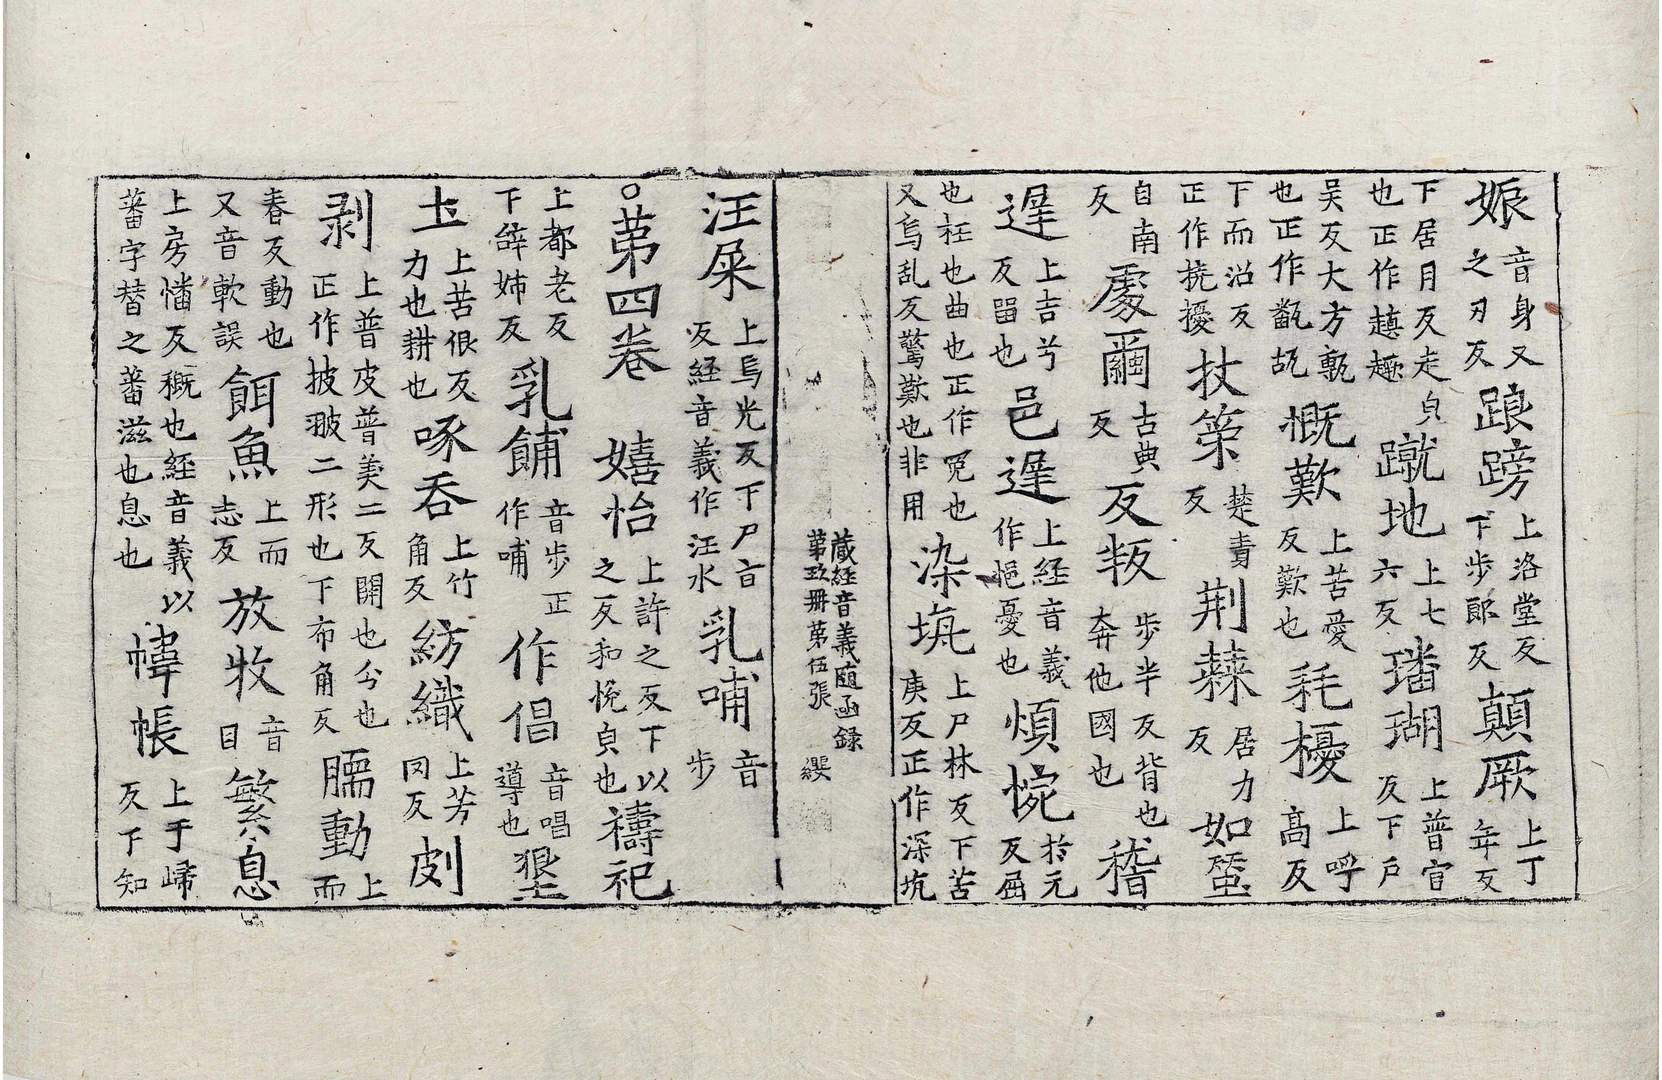 娠音身又之刃反踉蹡上洛堂反下步郎反顛厥上丁年反
下居月反走皃也正作䠠趣蹴地上七六反璠瑚上普官反下戶
吴反大方甎也正作㼧瓳慨歎上苦愛反歎也秏擾上呼高反
下而沼反正作撓擾杖䇿楚責反荆棘居力反如蛩
自南反𧇊爾古典反反叛步半反背也奔他國也稽
遟上吉兮反留也邑遟上經音義作悒憂也煩惋於元反屈
也枉也曲也正作冤也又烏乱反驚歎也非用染坈上尸林反下苦庚反正作深坑
藏経音義随函録
苐玖册苐伍張 纓
汪屎上烏光反下尸旨反経音義作汪水乳哺音步
○苐四卷 嬉怡上許之反下以之反和悅皃也禱祀
上都老反下辝姊反乳餔音步正作哺作倡音唱導也墾
土上苦很反力也耕也啄吞上竹角反紡織上芳罔反剫
剥上普皮普美二反開也分也正作披翍二形也下布角反臑動上而
春反動也又音軟誤餌魚上而志反放牧音目繁息
上房憣反穊也経音義以蕃字替之蕃滋也息也幃帳上于歸反下知